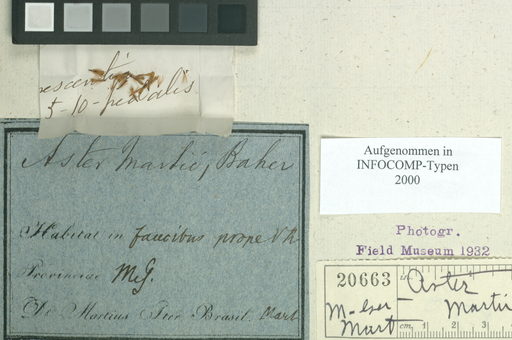 5-10-pedalis
Aster Martii, Baker
Habitat in faucibus prope V.R
Provinciae MG.
Dr. Martius Iter Brasil. Mart
Aufgenommen in
INFOCOMP-Typen
2000
Photogr.
Field Museum 1932
20663 Aster
Martii
Mart
cm. 1 2 3